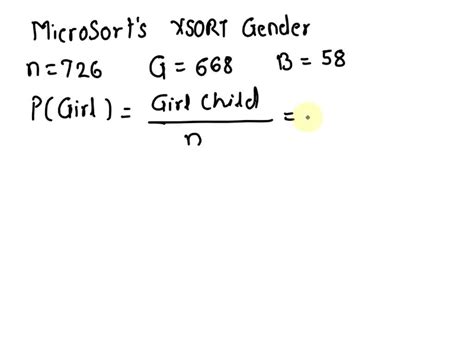 MicroSort's XSORT Gender
n=726 G = 668 B = 58
P(Girl) = Girl Child / n =